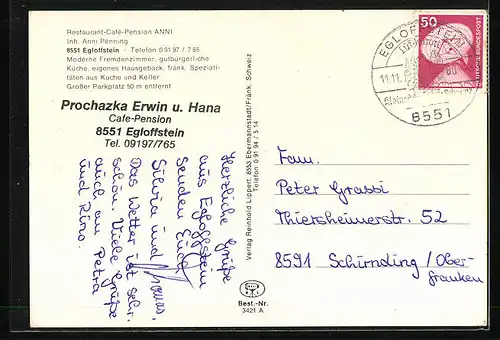 Restaurant-Café-Pension ANNI
Inh. Anni Penning
8551 Egloffstein · Telefon 0 91 97 / 7 65
Moderne Fremdenzimmer, gutbürgerliche
Küche, eigenes Hausgebäck, fränk. Speziali-
täten aus Küche und Keller
Großer Parkplatz 50 m entfernt
Prochazka Erwin u. Hana
Cafe-Pension
8551 Egloffstein
Tel. 09197/765
Herzliche Grüße
aus Egloffstein
senden Euch
Silvia und Thomas.
Das Wetter ist sehr
schön. Viele Grüße
auch an Petra
und
Verlag Reinhold Lippert, 8553 Ebermannstadt/Fränk. Schweiz
Telefon 0 91 94 / 5 14
Best.-Nr.
3421 A
EGLOFFSTEIN
11.11.
8551
50
DEUTSCHE BUNDESPOST
Fam.
Peter Grassi
Thiersheimerstr. 52
8591 Schirnding / Ober-
franken